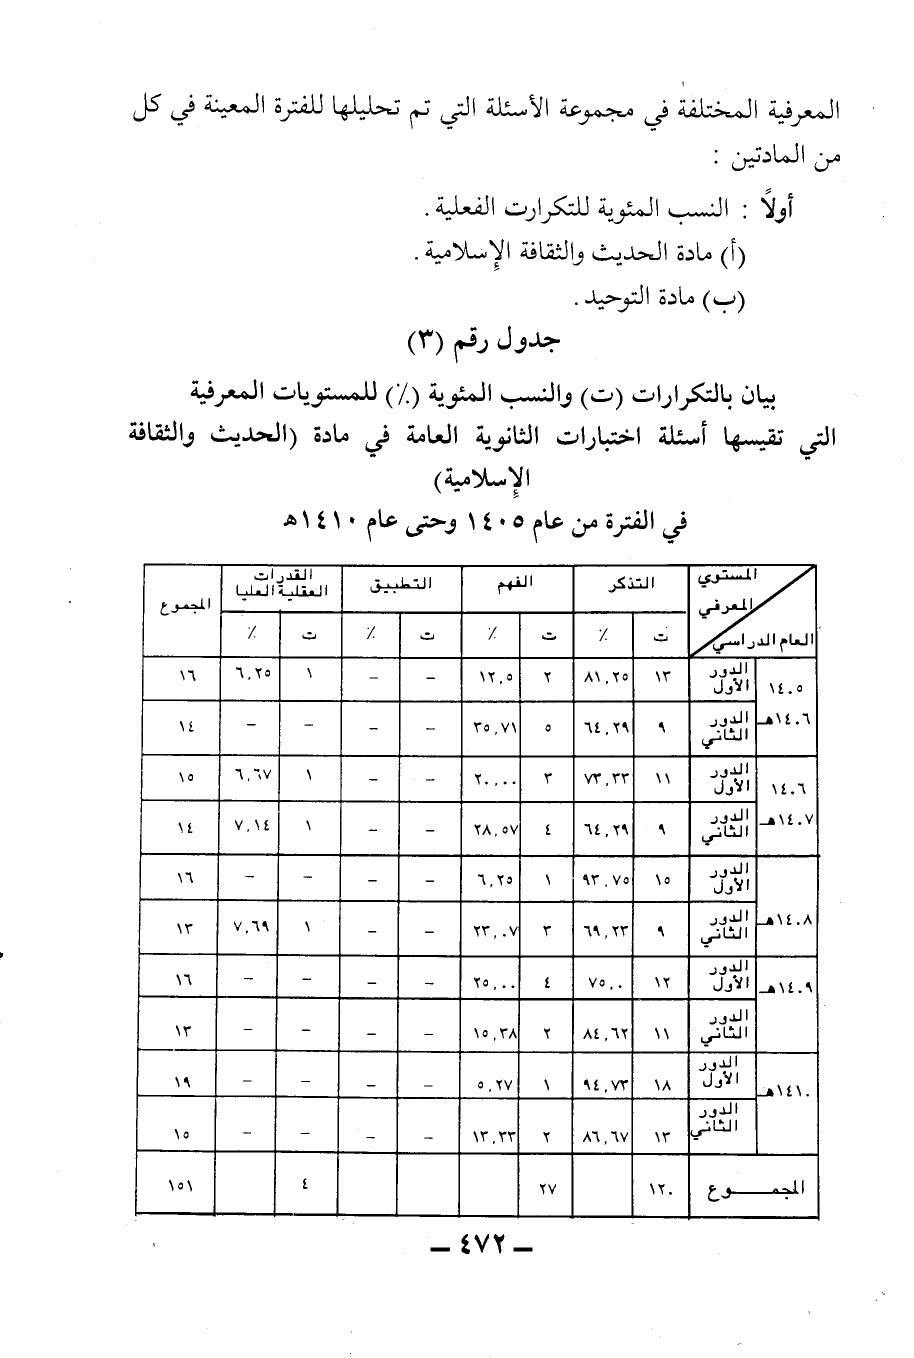 المعرفية المختلفة في مجموعة الأسئلة التي تم تحليلها للفترة المعينة في كل
من المادتين :
أولاً : النسب المئوية للتكرارت الفعلية .
(أ) مادة الحديث والثقافة الإسلامية .
(ب) مادة التوحيد .
جدول رقم (٣)
بيان بالتكرارات (ت) والنسب المئوية (٪) للمستويات المعرفية
التي تقيسها أسئلة اختبارات الثانوية العامة في مادة (الحديث والثقافة
الإسلامية)
في الفترة من عام ١٤٠٥ وحتى عام ١٤١٠هـ
المستوي المعرفي العام الدراسي التذكر الفهم التطبيق القدرات العقلية العليا المجموع
ت ٪ ت ٪ ت ٪ ت ٪
١٤٠٥ الدور الأول ١٣ ٨١,٢٥ ٢ ١٢,٥ – – ١ ٦,٢٥ ١٦
١٤٠٦هـ الدور الثاني ٩ ٦٤,٢٩ ٥ ٣٥,٧١ – – – – ١٤
١٤٠٦ الدور الأول ١١ ٧٣,٣٣ ٣ ٢٠,٠٠ – – ١ ٦,٦٧ ١٥
١٤٠٧هـ الدور الثاني ٩ ٦٤,٢٩ ٤ ٢٨,٥٧ – – ١ ٧,١٤ ١٤
١٤٠٨هـ الدور الأول ١٥ ٩٣,٧٥ ١ ٦,٢٥ – – – – ١٦
الدور الثاني ٩ ٦٩,٢٣ ٣ ٢٣,٠٧ – – ١ ٧,٦٩ ١٣
١٤٠٩هـ الدور الأول ١٢ ٧٥,٠٠ ٤ ٢٥,٠٠ – – – – ١٦
الدور الثاني ١١ ٨٤,٦٢ ٢ ١٥,٣٨ – – – – ١٣
١٤١٠هـ الدور الأول ١٨ ٩٤,٧٣ ١ ٥,٢٧ – – – – ١٩
الدور الثاني ١٣ ٨٦,٦٧ ٢ ١٣,٣٣ – – – – ١٥
المجمـــوع ١٢٠ ٢٧ ٤ ١٥١
– ٤٧٢ –